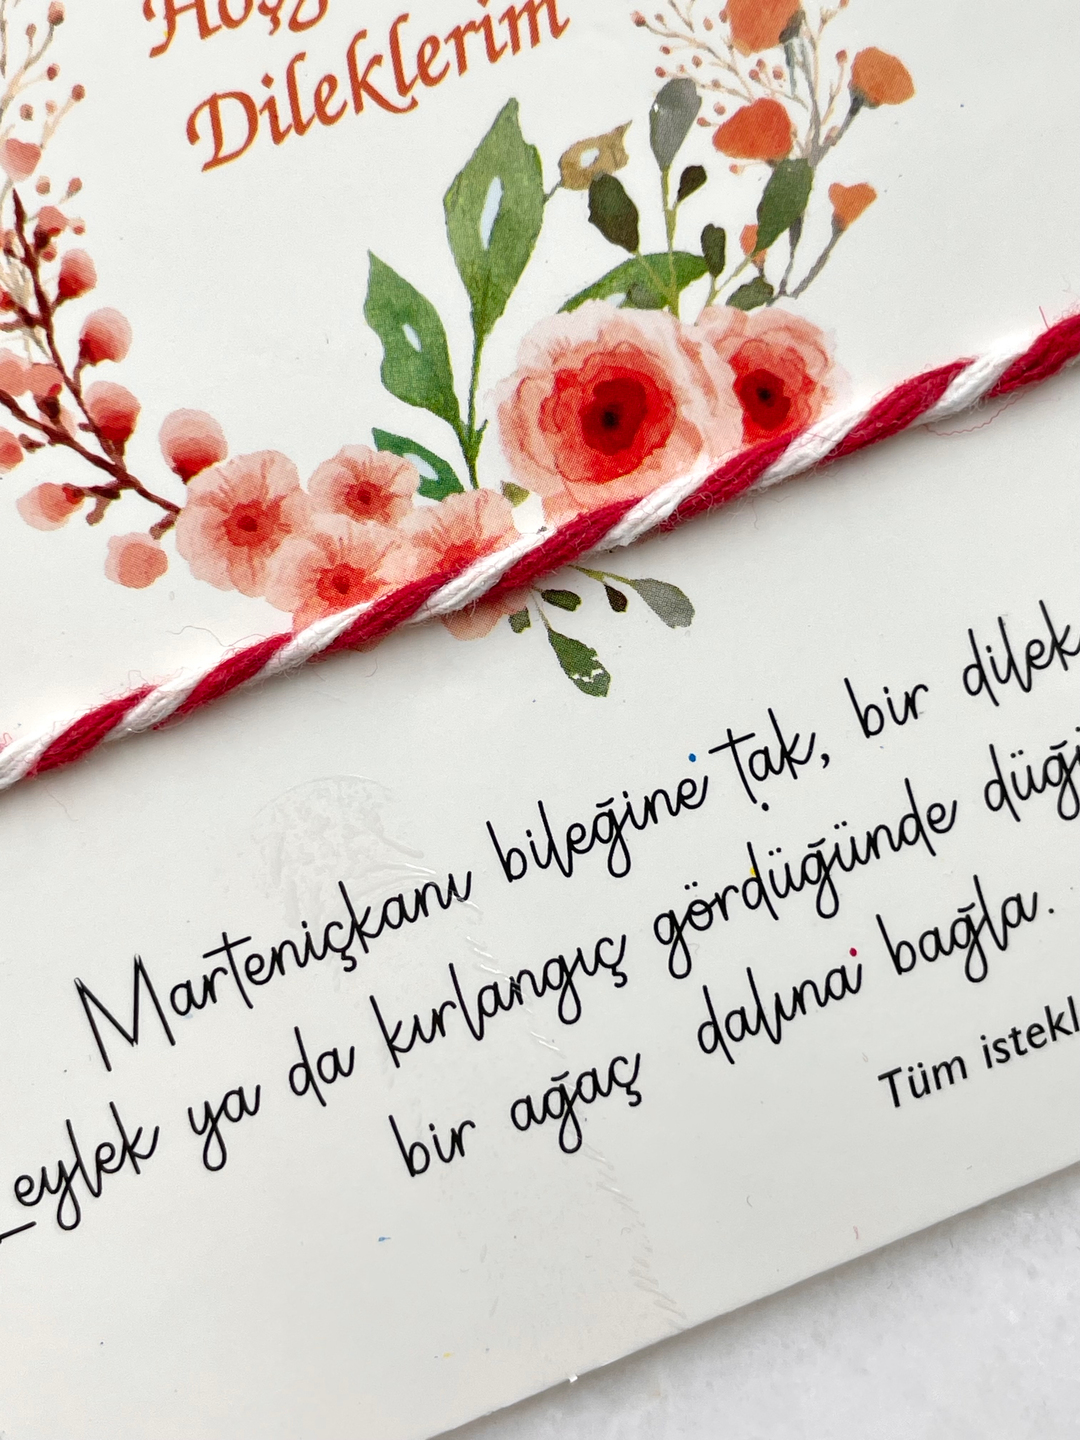 Dileklerim
Marteniçkanı bileğine tak, bir dilek
Leylek ya da kırlangıç gördüğünde
bir ağaç dalına bağla.
Tüm